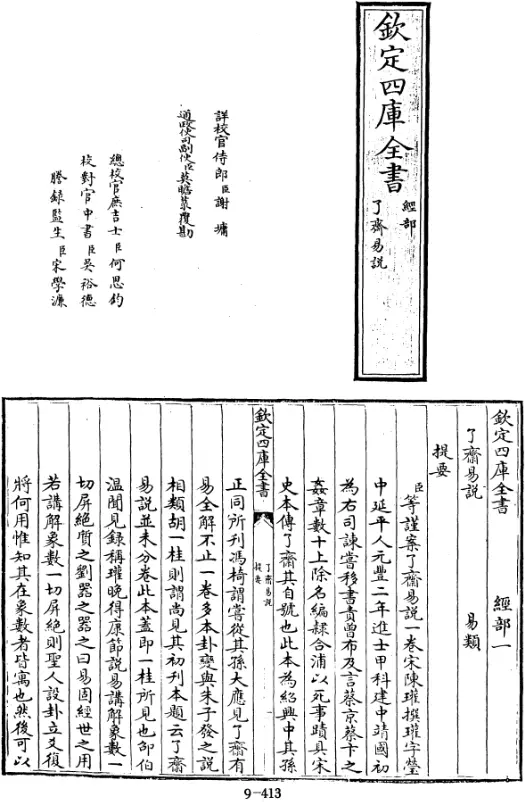 欽定四庫全書
經部
了齋易說
詳校官侍郎臣謝墉
通政使司副使臣莫瞻菉覆勘
總校官庶吉士臣何思鈞
校對官中書臣吳裕德
謄錄監生臣宋學濂
欽定四庫全書 經部一
了齋易說 易類
提要
臣等謹案了齋易說一卷宋陳瓘撰瓘字瑩
中延平人元豐二年進士甲科建中靖國初
為右司諫嘗移書責曾布及言蔡京蔡卞之
姦章數十上除名編隸合浦以死事蹟具宋
史本傳了齋其自號也此本為紹興中其孫
欽定四庫全書
了齋易說
提要
正同所刊馮椅謂嘗從其孫大應見了齋有
易全解不止一卷多本卦變與朱子發之說
相類胡一桂則謂尚見其初刊本題云了齋
易說並未分卷此本蓋即一桂所見也邵伯
溫聞見錄稱瓘晚得康節說易講解象數一
切屏絕質之劉器之器之曰易固經世之用
若講解象數一切屏絕則聖人設卦立爻復
將何用惟知其在象數者皆寓也然後可以
9-413